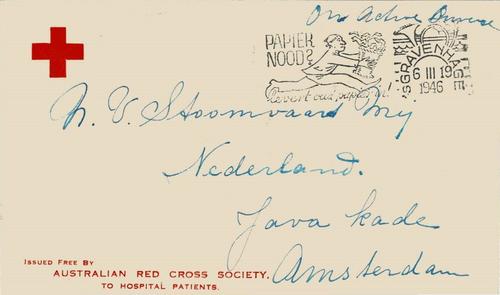 On Active Service
PAPIER
NOOD?
Levert oud papier in!
'S GRAVENHAGE
6 III 19
1946
N. V. Stoomvaart My
Nederland.
Java kade
Amsterdam
ISSUED FREE BY
AUSTRALIAN RED CROSS SOCIETY.
TO HOSPITAL PATIENTS.